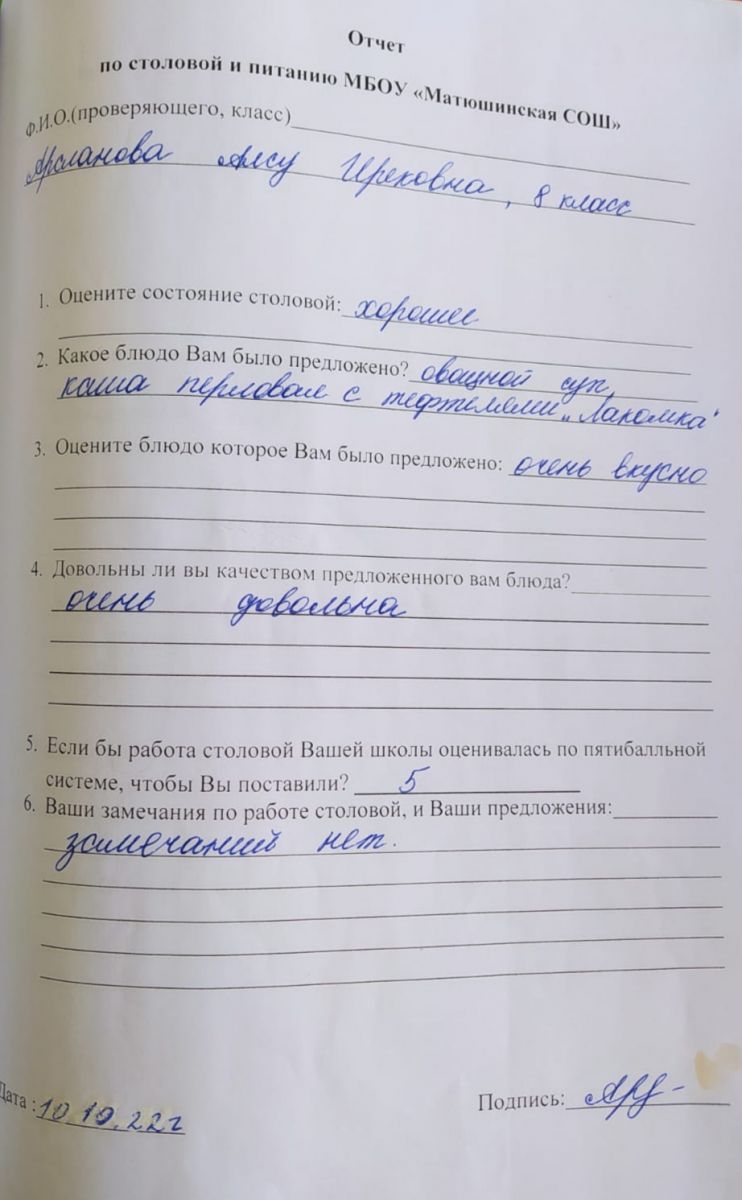 Отчет
по столовой и питанию МБОУ «Матюшинская СОШ»
Ф.И.О.(проверяющего, класс)
Арсланова Алсу Ирековна, 8 класс
1. Оцените состояние столовой: хорошее
2. Какое блюдо Вам было предложено? овощной суп,
каша перловая с тефтелями „Лакомка"
3. Оцените блюдо которое Вам было предложено: очень вкусно
4. Довольны ли вы качеством предложенного вам блюда?
очень довольна
5. Если бы работа столовой Вашей школы оценивалась по пятибалльной
системе, чтобы Вы поставили? 5
6. Ваши замечания по работе столовой, и Ваши предложения:
замечаний нет.
Дата: 10.10.22г
Подпись: